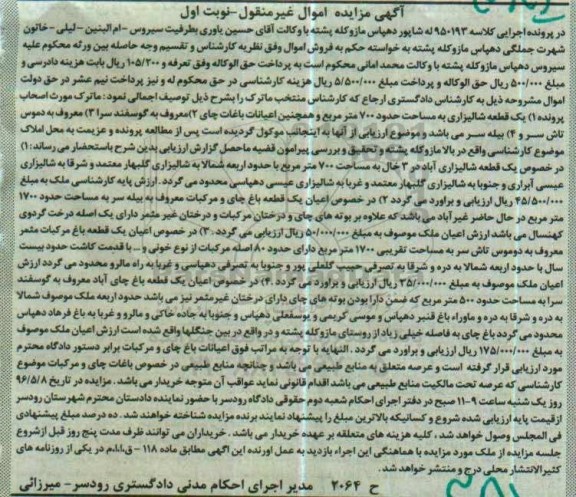 آگهی مزایده اموال غیرمنقول-نوبت اول
در پرونده اجرایی کلاسه ۹۵۰۱۹۳ له شاپور دهپاس مازوکله پشته با وکالت آقای حسین یاوری بطرفیت سیروس -ام البنین- لیلی- خاتون
شهرت جملگی دهپاس مازوکله پشته به خواسته حکم به فروش اموال وفق نظریه کارشناس و تقسیم وجه حاصل بین ورثه محکوم علیه
سیروس دهپاس مازوکله پشته با وکالت محمد امانی محکوم است به پرداخت حق الوکاله وفق تعرفه و ۱۰۵/۲۰۰ ریال بابت هزینه دادرسی و
مبلغ ۵۰۰/۰۰۰ ریال حق الوکاله و پرداخت مبلغ ۵/۵۰۰/۰۰۰ ریال هزینه کارشناسی در حق محکوم له و نیز پرداخت نیم عشر در حق دولت
اموال مشروحه ذیل به کارشناس دادگستری ارجاع که کارشناس منتخب ماترک را بشرح ذیل توصیف اجمالی نمود: ماترک مورث اصحاب
پرونده ۱) یک قطعه شالیزاری به مساحت حدود ۷۰۰ متر مربع و همچنین اعیانات باغات چای ۲)معروف به گوسفند سرا ۳) معروف به دموس
تاش سر و ۴) بیله سر می باشد و موضوع ارزیابی از آنها به اینجانب موکول گردیده است پس از مطالعه پرونده و عزیمت به محل املاک
موضوع کارشناسی واقع در بالا مازوکله پشته و تحقیق و بررسی پیرامون قضیه ماحصل گزارش ارزیابی بدین شرح باستحضار می رساند: ۱)
در خصوص یک قطعه شالیزاری آباد در ۳ خال به مساحت ۷۰۰ متر مربع با حدود اربعه شمالا به شالیزاری گلبهار معتمد و شرقا به شالیزاری
عیسی آبراری و جنوبا به شالیزاری گلبهار معتمد و غربا به شالیزاری عیسی دهپاسی محدود می گردد. ارزش پایه کارشناسی ملک به مبلغ
۴۵/۵۰۰/۰۰۰ ریال ارزیابی و براورد می گردد ۲) در خصوص اعیان یک قطعه باغ چای و مرکبات معروف به بیله سر به مساحت حدود ۱۷۰۰
متر مربع در حال حاضر غیر آباد می باشد که علاوه بر بوته های چای و درختان مرکبات و درختان غیر مثمر دارای یک اصله درخت گردوی
کهنسال می باشد ارزش اعیان ملک موصوف به مبلغ ۵۰/۰۰۰/۰۰۰ ریال ارزیابی می گردد. ۳) در خصوص اعیان یک قطعه باغ مرکبات مثمر
معروف به دوموس تاش سر به مساحت تقریبی ۱۷۰۰ متر مربع دارای حدود ۸۰ اصله مرکبات از نوع خونی و... با قدمت کاشت حدود بیست
سال با حدود اربعه شمالا به دره و شرقا به تصرفی حسن کلفتی پور و جنوبا به تصرفی دهپاسی و غربا به راه مالرو محدود می گردد ارزش
اعیان ملک موصوف به مبلغ ۳۵/۰۰۰/۰۰۰ ریال ارزیابی و براورد می گردد. ۴) در خصوص اعیان یک قطعه باغ چای آباد معروف به گوسفند
سرا به مساحت حدود ۵۰۰ متر مربع که ضمن دارا بودن بوته های چای دارای درختان غیرمثمر نیز می باشد حدود اربعه ملک موصوف شمالا
به دره و شرقا به دره و ماوراء باغ قنبر دهپاس و موسی کریمی و یوسفعلی دهپاس و جنوبا به جاده خاکی و مالرو و غربا به باغ فرهاد دهپاس
محدود می گردد باغ چای به فاصله خیلی زیاد از روستای مازوکله پشته و در واقع در بین جنگلها واقع شده است ارزش اعیان ملک موصوف
به مبلغ ۱۷۵/۰۰۰/۰۰۰ ریال ارزیابی و براورد می گردد. النهایه با توجه به مراتب فوق اعیانات باغ چای و مرکبات برابر دستور دادگاه محترم
مورد ارزیابی قرار گرفته است و عرصه متعلق به منابع طبیعی می باشد و چنانچه منابع طبیعی در خصوص باغات چای و مرکبات موضوع
کارشناسی که عرصه تحت مالکیت منابع طبیعی می باشد اقدام قانونی نماید عواقب آن متوجه خریدار می باشد. مزایده در تاریخ ۹۶/۵/۸
روز یک شنبه ساعت ۹-۱۱ صبح در دفتر اجرای احکام شعبه دوم حقوقی دادگاه رودسر با حضور نماینده دادستان محترم شهرستان رودسر
ازقیمت پایه ارزیابی شده شروع و کسانیکه بالاترین مبلغ را پیشنهاد نمایند برنده مزایده شناخته خواهند شد. ده درصد مبلغ پیشنهادی
فی المجلس وصول خواهد شد، کلیه هزینه های متعلقه بر عهده خریدار می باشد. خریداران می توانند ظرف مدت پنج روز قبل ازشروع
جلسه مزایده از ملک مورد مزایده با هماهنگی این اجراء بازدید به عمل اورنده این اگهی مطابق ماده ۱۱۸ -ق.ا.ا.م در یکی از روزنامه های
کثیرالانتشار محلی درج و منتشر خواهد شد.
ح ۲۰۶۴ مدیر اجرای احکام مدنی دادگستری رودسر- میرزائی